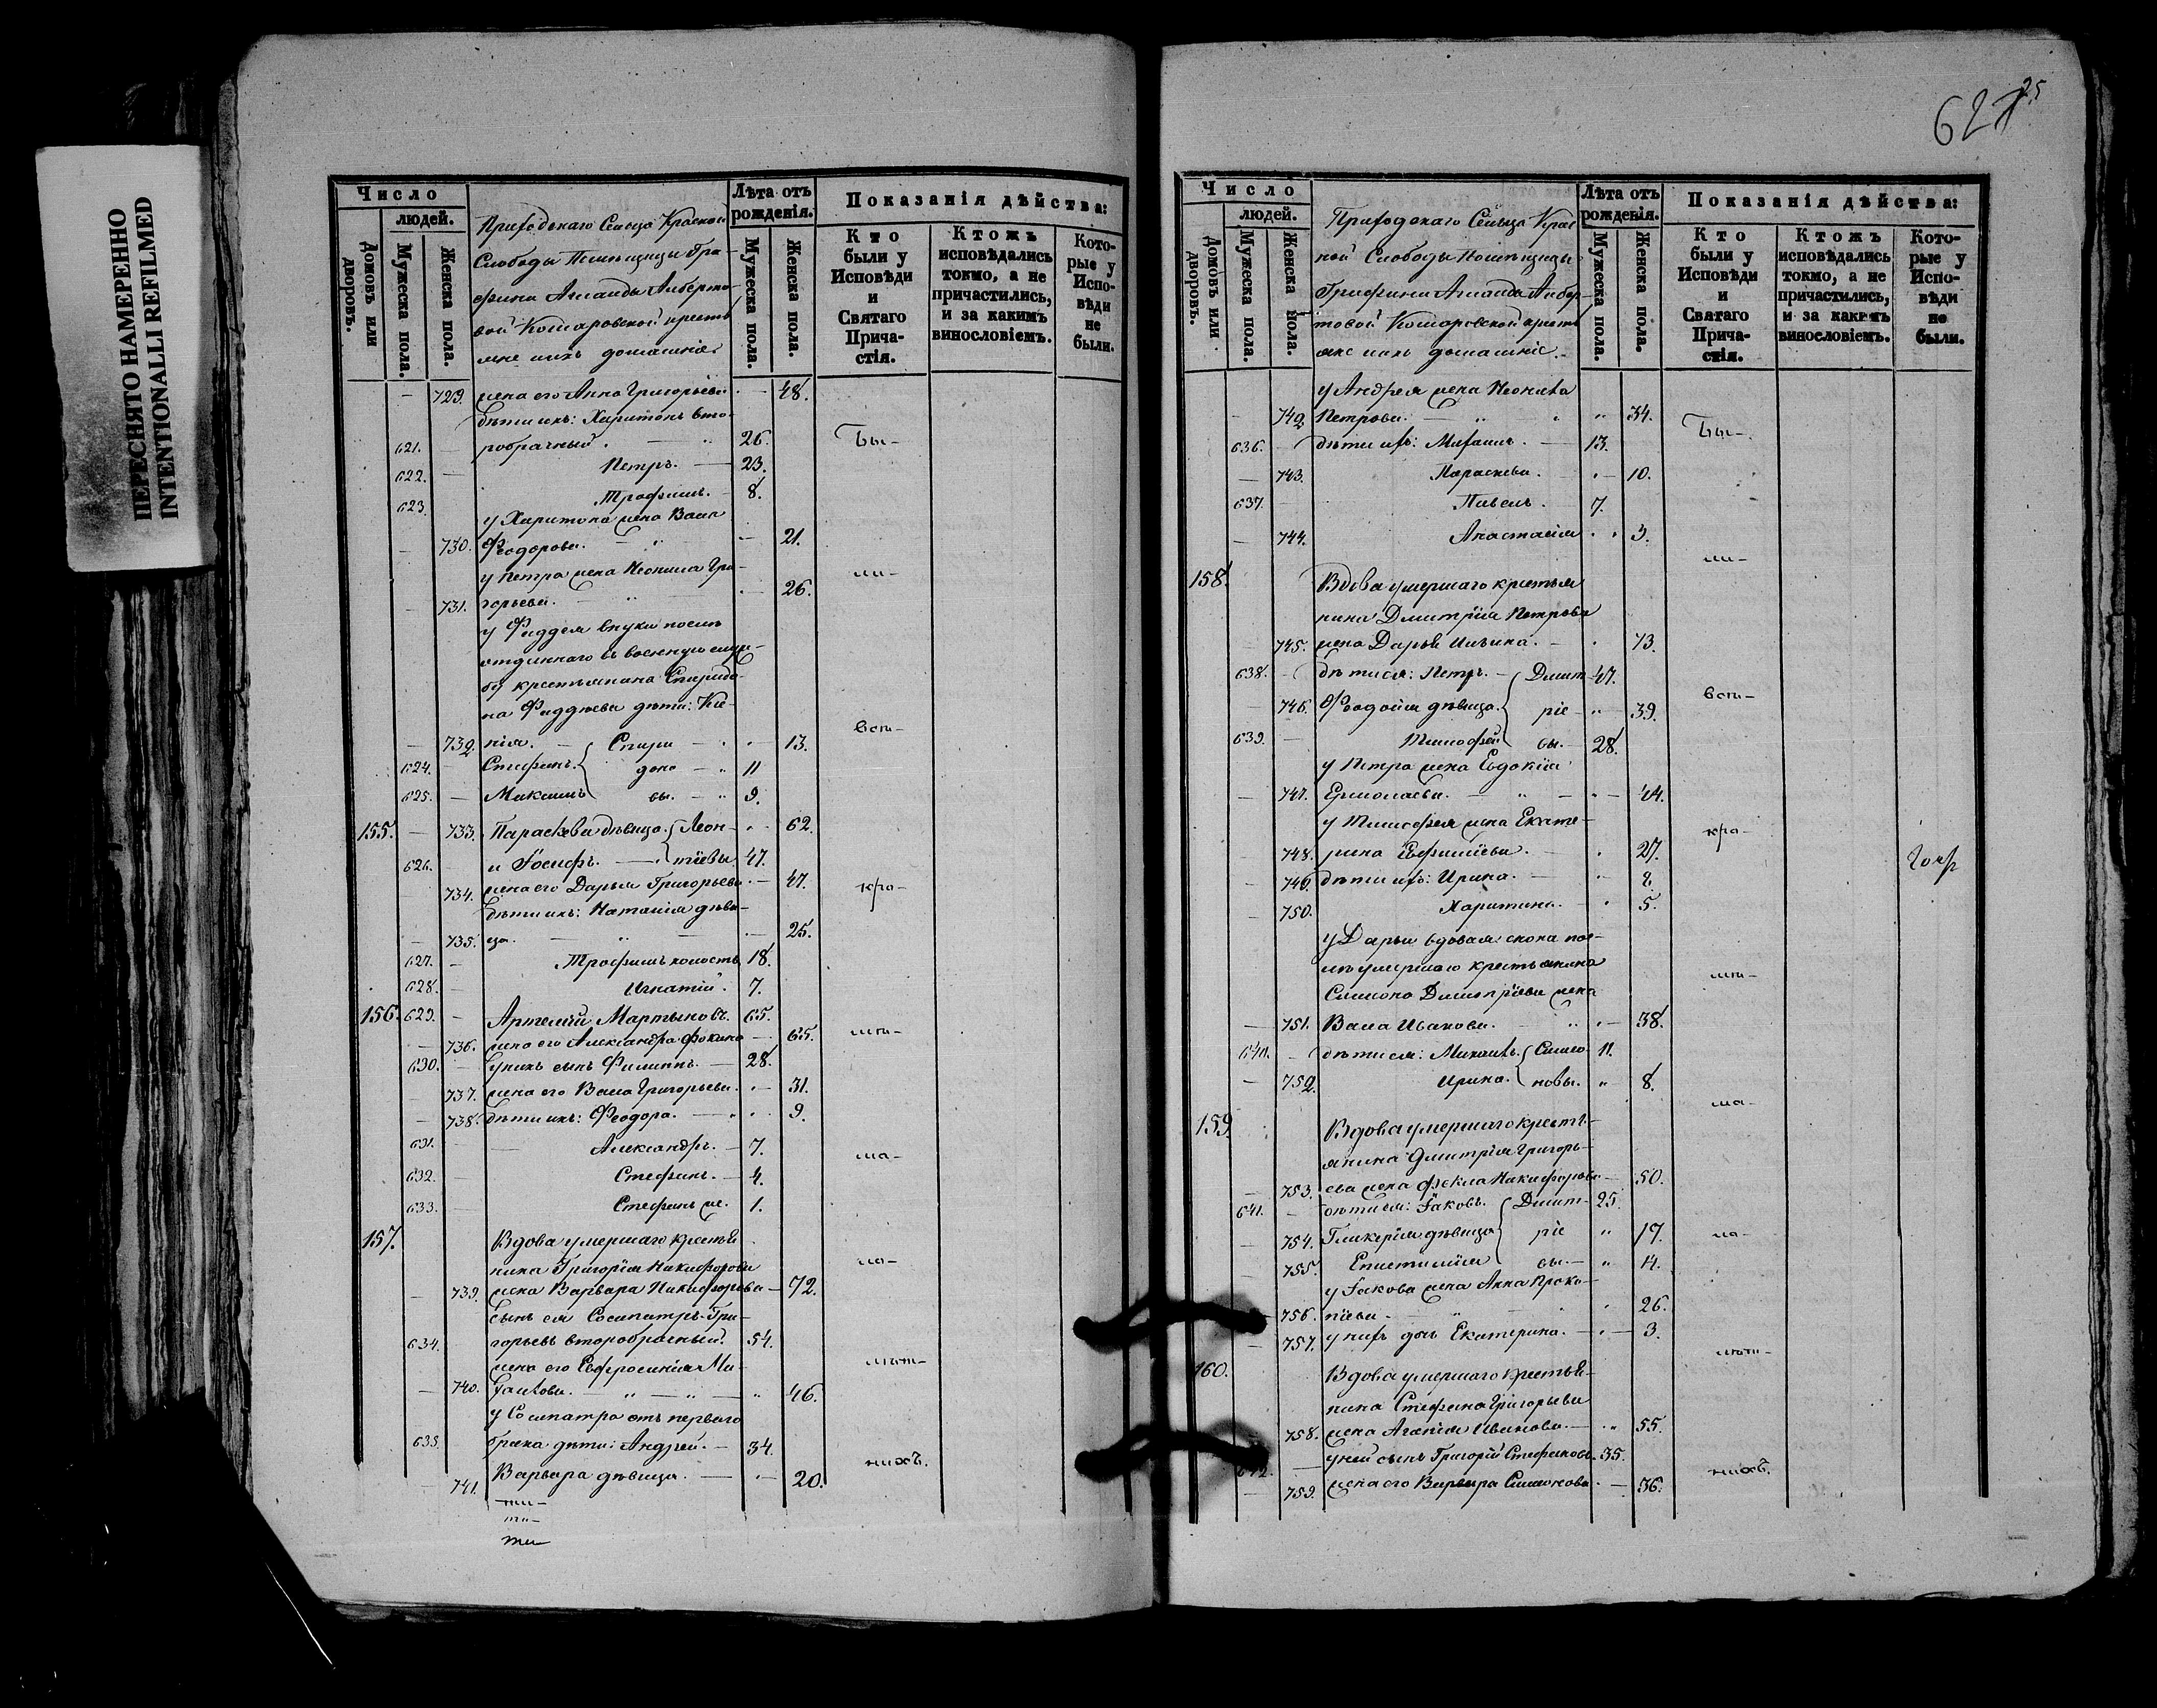 ПЕРЕСНЯТО НАМЕРЕННО
INTENTIONALLI REFILMED
Число
людей.
Домовъ или дворовъ.
Мужеска пола.
Женска пола.
Приходскаго Сельца Красной
Слободы Помѣщицы Гра-
фини Аманды Альберто-
вой Комаровской крестья
не ихъ домашніе
Лѣта отъ рожденія.
Мужеска пола.
Женска пола.
Показанія дѣйства:
Кто были у Исповѣди и Святаго Прича- стія.
Ктожъ исповѣдались токмо, а не причастились, и за какимъ винословіемъ.
Кото- рые у Испо- вѣди не были.
729. жена его Анна Григорьева 48.
дѣти ихъ: Харитонъ вто-
621. робрачный. 26. Бы-
622. Петръ. 23.
623. Трофимъ. 8.
у Харитона жена Васса
730. Феодорова. 21.
у Петра жена Неонила Гри-
731. горьева. 26. ли-
у Фаддея внуки послѣ
отданнаго въ военную служ-
бу крестьянина Спиридо-
на Фаддѣева дѣти: Ксе-
732. нія. Спири 13. вси-
624. Стефанъ. доно 11
625. Максимъ вы. 9.
155. 733. Параскева дѣвица. Леон- 62.
626. и Іосифъ. тіевы 47.
734. жена его Дарья Григорьева 47. кро-
дѣти ихъ: Наталія дѣви-
735. ца. 25.
627. Трофимъ холостъ 18.
628. Игнатій. 7.
156. 629. Артемій Мартыновъ. 65.
736. жена его Александра Фокина 65. мѣ-
630. у нихъ сынъ Филиппъ. 28.
737. жена его Васса Григорьева. 31.
738. дѣти ихъ: Феодора. 9.
631. Александръ. 7. ма-
632. Стефанъ. 4.
633. Стефанъ же. 1.
157. Вдова умершаго крестья
нина Григорія Никифорова ло-
739. жена Варвара Никифорова 72.
сынъ ея Сосипатръ Гри-
634. горьевъ второбрачный. 54.
жена его Евфросинія Ми-
740. хайлова. 46. лѣт-
у Сосипатра отъ перваго
635. брака дѣти: Андрей. 34. нихъ.
741. Варвара дѣвица. 20.
627
25
Число
людей.
Домовъ или дворовъ.
Мужеска пола.
Женска пола.
Приходскаго Сельца Крас
ной Слободы Помѣщицы
Графини Аманды Альбер-
товой Комаровской кресть
яне ихъ домашніе.
Лѣта отъ рожденія.
Мужеска пола.
Женска пола.
Показанія дѣйства:
Кто были у Исповѣди и Святаго Прича- стія.
Ктожъ исповѣдались токмо, а не причастились, и за какимъ винословіемъ.
Кото- рые у Испо- вѣди не были.
у Андрея жена Неонила
742 Петрова. 34. Бы-
636. дѣти ихъ: Михаилъ. 13.
743. Параскева. 10.
637. Павелъ. 7.
744. Анастасія 3.
ли-
158. Вдова умершаго крестья
нина Димитрія Петрова
745. жена Дарья Ильина. 73.
638. дѣти ея: Петръ. Димит- 47.
746. Феодосія дѣвица. ріе 39. вси-
639. Тимофей вы. 28.
у Петра жена Евдокія
747. Ермолаева. 44.
у Тимофея жена Екате- кро-
748. рина Евфиміева. 27.
749. дѣти ихъ: Ирина. 8.
750. Харитина. 5.
у Дарьи вдовая сноха пос-
лѣ умершаго крестьянина мѣ-
Симеона Димитріева жена
751. Васса Иванова. 38.
640. дѣти ея: Михаилъ. Симео- 11.
752. Ирина. новы. 8.
ма-
159. Вдова умершаго кресть-
янина Димитрія Григорь-
753. ева жена Фекла Никифорова 50.
641. дѣти ея: Іаковъ. Димит- 25.
754. Гликерія дѣвица ріе 17. ло-
755. Епистимія вы. 14.
у Іакова жена Анна Проко-
756. піева. 26.
757. у нихъ дочь Екатерина. 3.
лѣт-
160. Вдова умершаго крестья-
нина Стефана Григорьева
758. жена Агафія Иванова 55.
642. у ней сынъ Григорій Стефановъ 35.
759. жена его Варвара Симонова. 36. нихъ.